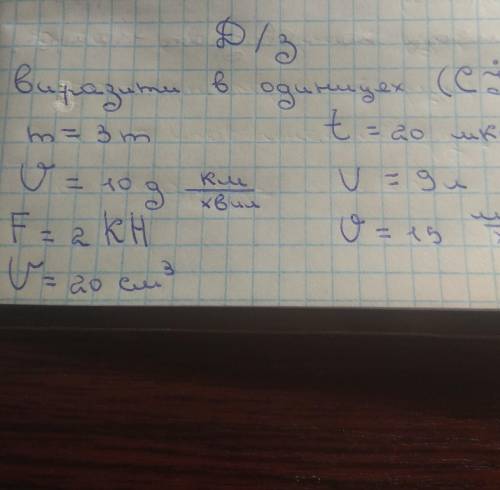 Д/З
Виразити в одиницях (Сі
m = 3 т t = 20 мк
V = 10 км/хвил V = 9 л
F = 2 кН V = 15
V = 20 см³